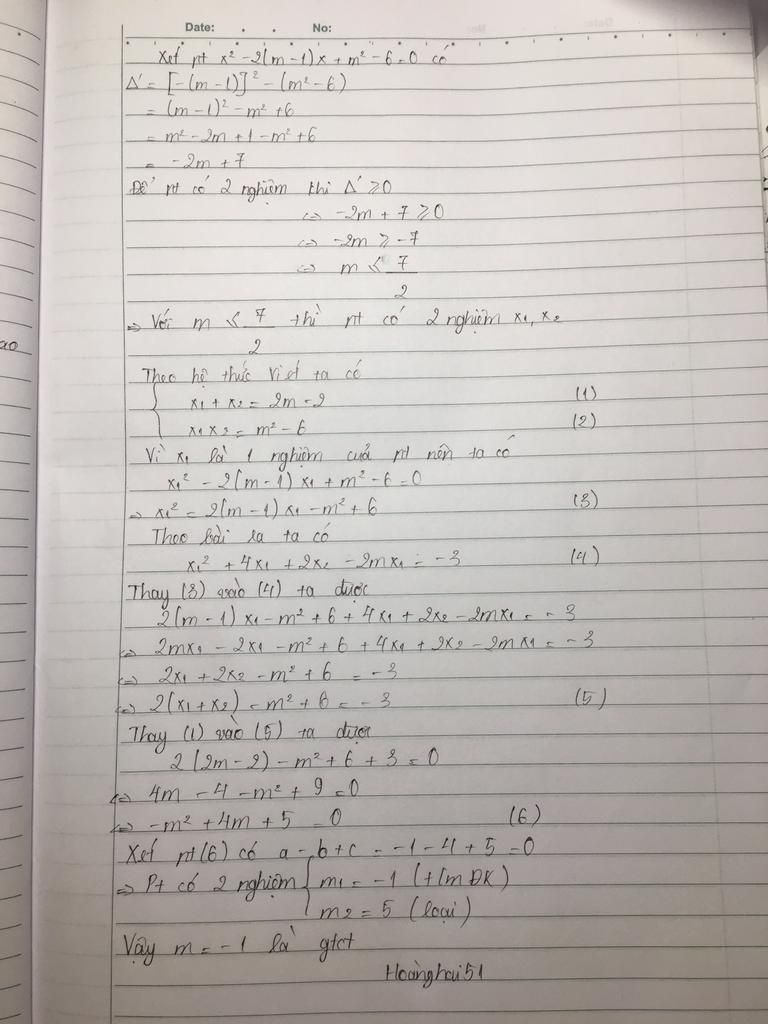 Date: . . No:
Xét pt x² - 2(m-1)x + m² - 6 = 0 có
Δ' = [-(m-1)]² - (m² - 6)
= (m-1)² - m² + 6
= m² - 2m + 1 - m² + 6
= -2m + 7
Để pt có 2 nghiệm thì Δ' ≥ 0
⇔ -2m + 7 ≥ 0
⇔ -2m ≥ -7
⇔ m ≤ 7/2
⇒ Với m ≤ 7/2 thì pt có 2 nghiệm x₁, x₂
Theo hệ thức Viét ta có
x₁ + x₂ = 2m - 2 (1)
x₁x₂ = m² - 6 (2)
Vì x₁ là 1 nghiệm của pt nên ta có
x₁² - 2(m-1)x₁ + m² - 6 = 0
⇒ x₁² = 2(m-1)x₁ - m² + 6 (3)
Theo bài ra ta có
x₁² + 4x₁ + 2x₂ - 2mx₁ = -3 (4)
Thay (3) vào (4) ta được
2(m-1)x₁ - m² + 6 + 4x₁ + 2x₂ - 2mx₁ = -3
⇔ 2mx₁ - 2x₁ - m² + 6 + 4x₁ + 2x₂ - 2mx₁ = -3
⇔ 2x₁ + 2x₂ - m² + 6 = -3
⇔ 2(x₁ + x₂) - m² + 6 = -3 (5)
Thay (1) vào (5) ta được
2(2m-2) - m² + 6 + 3 = 0
⇔ 4m - 4 - m² + 9 = 0
⇔ -m² + 4m + 5 = 0 (6)
Xét pt(6) có a - b + c = -1 - 4 + 5 = 0
⇒ Pt có 2 nghiệm m₁ = -1 (t/m ĐK)
m₂ = 5 (loại)
Vậy m = -1 là gtct
Hoànghai51